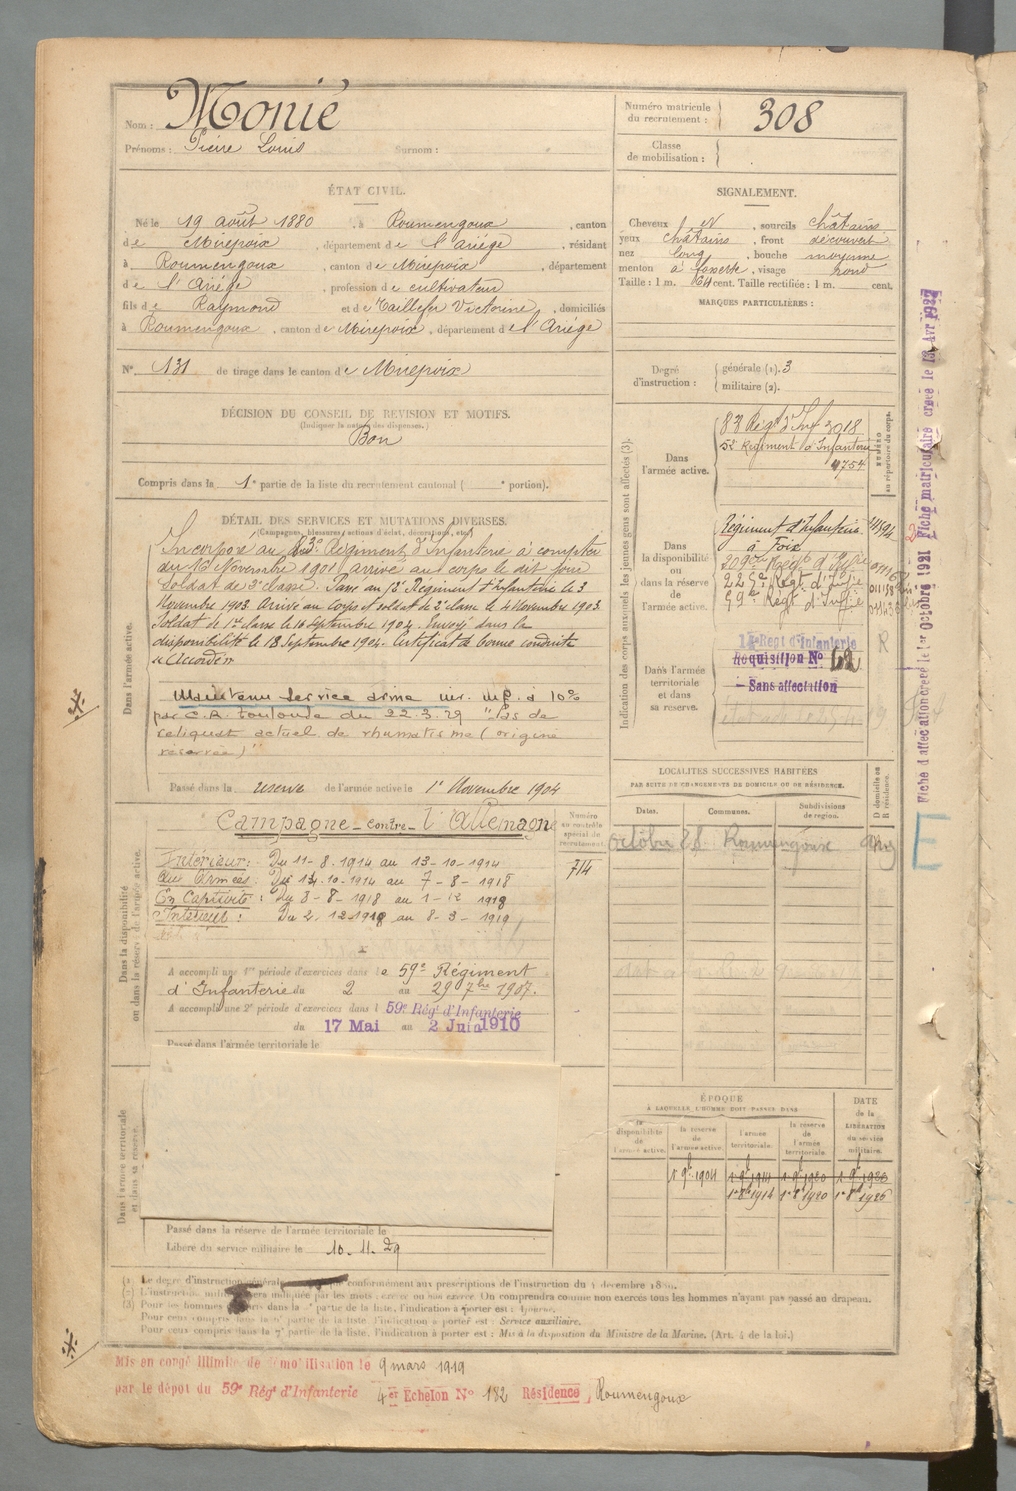 Nom : Monié
Prénoms : Pierre Louis Surnom :
Numéro matricule du recrutement : 308
Classe de mobilisation :
ÉTAT CIVIL.
Né le 19 août 1880, à Roumengoux, canton
de Mirepoix, département de l'Ariége, résidant
à Roumengoux, canton de Mirepoix, département
de l'Ariége, profession de cultivateur
fils de Raymond et de Taillefer Victorine, domiciliés
à Roumengoux, canton de Mirepoix, département de l'Ariége
N° 131 de tirage dans le canton de Mirepoix
DÉCISION DU CONSEIL DE REVISION ET MOTIFS.
(Indiquer la nature des dispenses.)
Bon
Compris dans la 1e partie de la liste du recrutement cantonal ( e portion).
SIGNALEMENT.
Cheveux N, sourcils châtains
yeux châtains, front découvert
nez long, bouche moyenne
menton à fossette, visage rond
Taille : 1 m. 64 cent. Taille rectifiée : 1 m. cent.
MARQUES PARTICULIÈRES :
Degré d'instruction :
générale (1). 3
militaire (2).
DÉTAIL DES SERVICES ET MUTATIONS DIVERSES.
(Campagnes, blessures, actions d'éclat, décorations, etc.)
Dans l'armée active.
Incorporé au Régiment d'Infanterie à compter
du 16 Novembre 1901 arrivé au corps le dit jour
Soldat de 2e classe. Passé au Régiment d'Infanterie le 3
Novembre 1903. Arrivé au corps et soldat de 2e classe le 4 Novembre 1903.
Soldat de 1re classe le 16 Septembre 1904. Envoyé dans la
disponibilité le 18 Septembre 1904. Certificat de bonne conduite
"Accordé"
Maintenu Service armé inf. à 10%
par C.R. Toulouse du 22.3.29 "Pas de
reliquat actuel de rhumatisme (origine
réservée)"
Passé dans la reserve de l'armée active le 1er Novembre 1904
Indication des corps auxquels les jeunes gens sont affectés (3).
NUMÉRO au répertoire du corps.
Dans l'armée active.
83 Régt d'Inf 3018
Régiment d'Infanterie
4754
Dans la disponibilité ou dans la réserve de l'armée active.
Régiment d'Infanterie
à Foix
209e Régt d'Infie
Régt d'Infie
59e Régt d'Infie
Dans l'armée territoriale et dans sa reserve.
Régt d'Infanterie
Réquisition N° 62
Sans affectation
R
LOCALITÉS SUCCESSIVES HABITÉES
PAR SUITE DE CHANGEMENTS DE DOMICILE OU DE RÉSIDENCE.
Dates. Communes. Subdivisions de région. D domicile ou R résidence.
Octobre 28 Roumengoux
Dans la disponibilité ou dans la réserve de l'armée active.
Numéro au contrôle spécial du recrutement.
714
Campagne contre l'Allemagne
Intérieur : Du 11-8-1914 au 13-10-1914
Aux Armées : Du 14-10-1914 au 7-8-1918
En Captivité : Du 8-8-1918 au 1-12 1918
Intérieur : Du 2-12-1918 au 8-3-1919
A accompli une 1re période d'exercices dans le 59e Régiment
d'Infanterie du 2 au 29 7bre 1907.
A accompli une 2e période d'exercices dans l 59e Régt d'Infanterie
du 17 Mai au 2 Juin 1910
Passé dans l'armée territoriale le
Dans l'armée territoriale et dans sa réserve.
Passé dans la réserve de l'armée territoriale le
Libéré du service militaire le 10.11.29
ÉPOQUE
À LAQUELLE L'HOMME DOIT PASSER DANS
la disponibilité de l'armée active.
la réserve de l'armée active.
l'armée territoriale.
la réserve de l'armée territoriale.
DATE de la LIBÉRATION du service militaire.
1er 9bre 1904
1er 8bre 1914 1er 8bre 1920 1er 8bre 1926
(1) Le degré d'instruction générale conformément aux prescriptions de l'instruction du 4 décembre 1889.
(2) L'instruction militaire sera indiquée par les mots : exercé ou non exercé. On comprendra comme non exercés tous les hommes n'ayant pas passé au drapeau.
(3) Pour les hommes dans la partie de la liste, l'indication à porter est :
Pour ceux compris dans la partie de la liste, l'indication à porter est : Service auxiliaire.
Pour ceux compris dans la 7e partie de la liste, l'indication à porter est : Mis à la disposition du Ministre de la Marine. (Art. 4 de la loi.)
Mis en congé illimité de démobilisation le 9 mars 1919
par le dépot du 59e Régt d'Infanterie 4er Echelon N° 182 Résidence Roumengoux
Fiche d'affectation créée le 1er Octobre 1921 Fiche matriculaire créée le 13 Avr 1927
E